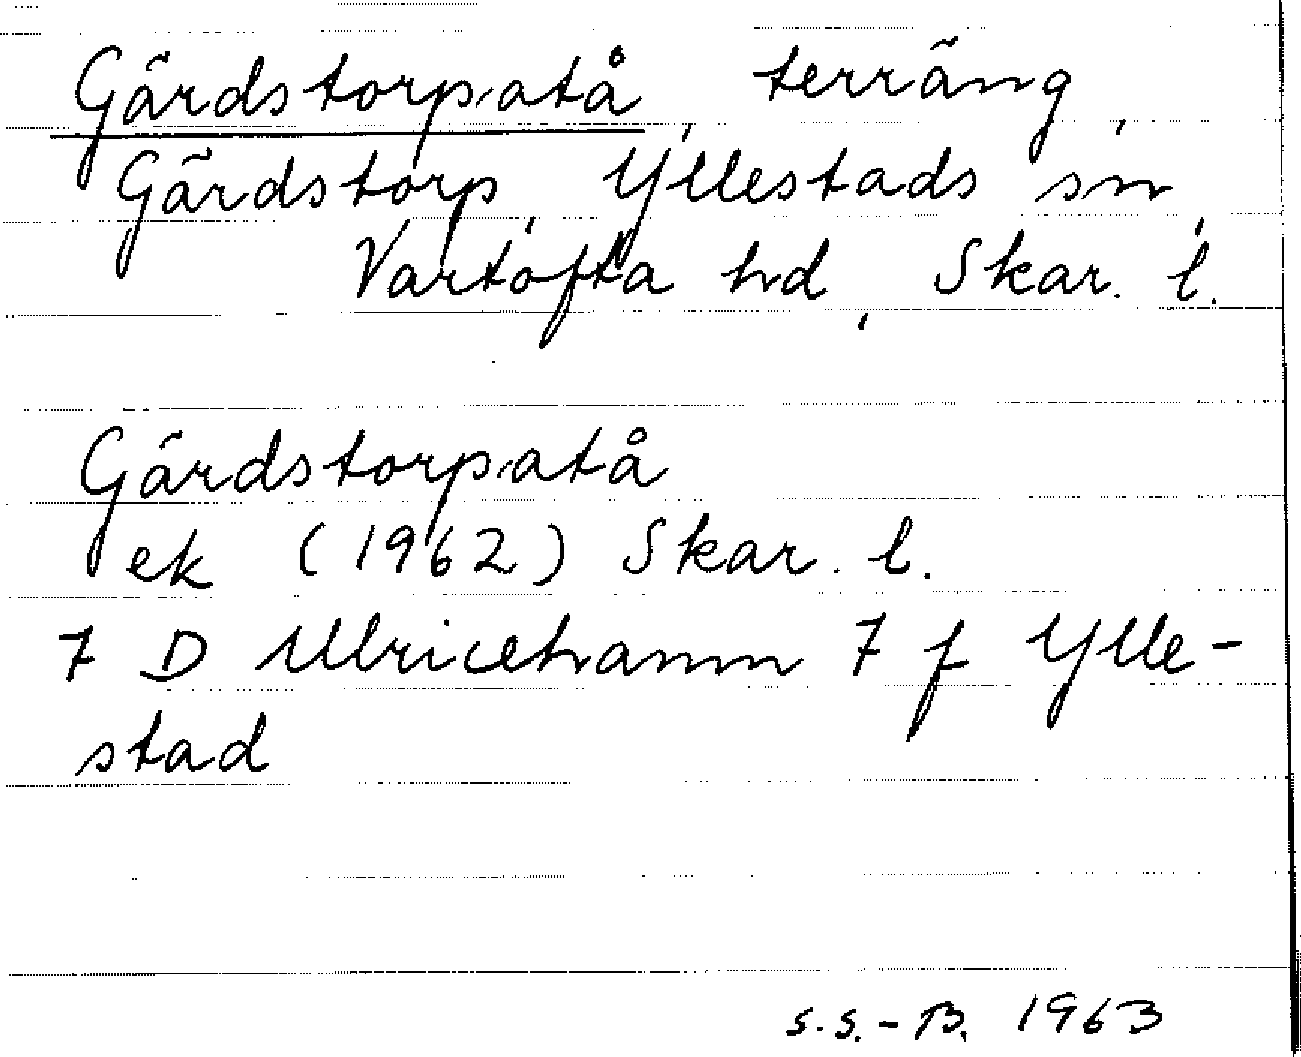 Gärdstorpatå, terräng,
Gärdstorp, Yllestads sn,
Vartofta hd, Skar. l.
Gärdstorpatå
ek (1962) Skar. l.
7 D Ulricehamn 7 f Ylle-
stad
S.S.-B. 1963